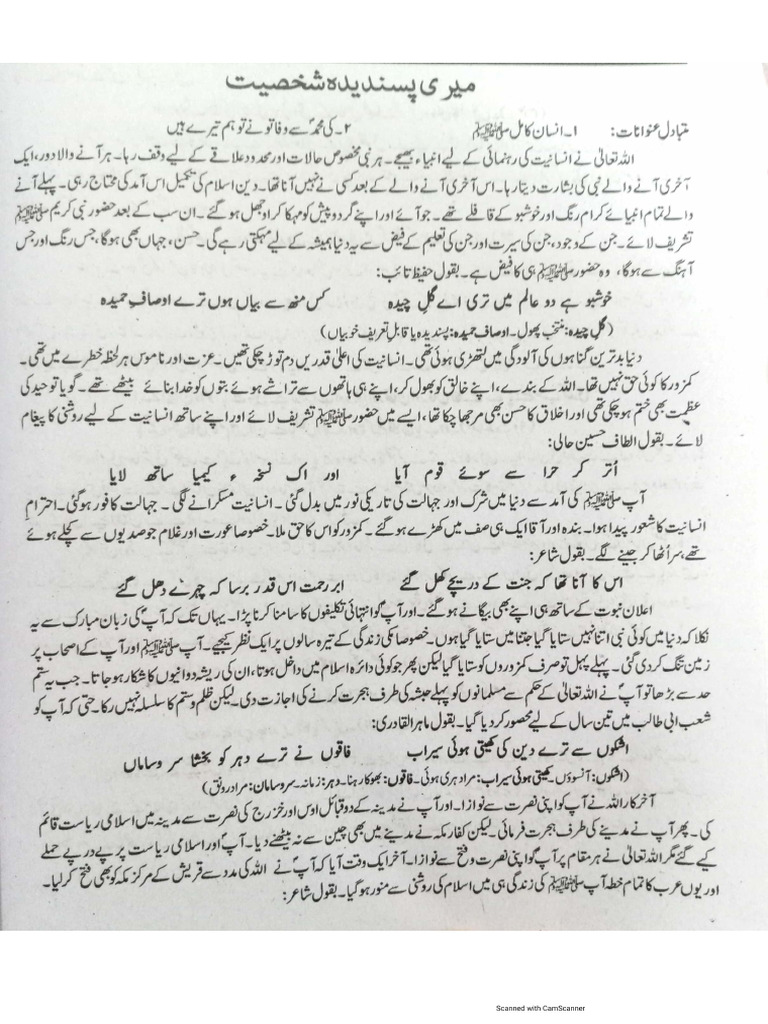 میری پسندیدہ شخصیت
متبادل عنوانات: ۱۔ انسان کامل ﷺ ۲۔ کی محمدؐ سے وفا تو نے تو ہم تیرے ہیں
اللہ تعالیٰ نے انسانیت کی رہنمائی کے لیے انبیاء بھیجے۔ ہر نبی مخصوص حالات اور محدود علاقے کے لیے وقف رہا۔ ہر آنے والا دور، ایک
آخری آنے والے نبی کی بشارت دیتا رہا۔ اس آخری آنے والے کے بعد کسی نے نہیں آنا تھا۔ دین اسلام کی تکمیل اس آمد کی محتاج رہی۔ پہلے آنے
والے تمام انبیائے کرام رنگ اور خوشبو کے قافلے تھے۔ جو آئے اور اپنے گرد و پیش کو مہکا کر اوجھل ہو گئے۔ ان سب کے بعد حضور نبی کریم ﷺ
تشریف لائے۔ جن کے وجود، جن کی سیرت اور جن کی تعلیم کے فیض سے یہ دنیا ہمیشہ کے لیے مہکتی رہے گی۔ حسن، جہاں بھی ہوگا، جس رنگ اور جس
آہنگ سے ہوگا، وہ حضور ﷺ ہی کا فیض ہے۔ بقول حفیظ تائب:
خوشبو ہے دو عالم میں تری اے گلِ چیدہ کس منھ سے بیاں ہوں ترے اوصاف حمیدہ
(گلِ چیدہ: منتخب پھول۔ اوصاف حمیدہ: پسندیدہ یا قابل تعریف خوبیاں)
دنیا بدترین گناہوں کی آلودگی میں لتھڑی ہوئی تھی۔ انسانیت کی اعلیٰ قدریں دم توڑ چکی تھیں۔ عزت اور ناموس ہر لحظہ خطرے میں تھی۔
کمزور کا کوئی حق نہیں تھا۔ اللہ کے بندے، اپنے خالق کو بھول کر، اپنے ہی ہاتھوں سے تراشے ہوئے بتوں کو خدا بنائے بیٹھے تھے۔ گویا توحید کی
عظمت بھی ختم ہو چکی تھی اور اخلاق کا حسن بھی مرجھا چکا تھا، ایسے میں حضور ﷺ تشریف لائے اور اپنے ساتھ انسانیت کے لیے روشنی کا پیغام
لائے۔ بقول الطاف حسین حالی:
اُتر کر حرا سے سوئے قوم آیا اور اک نسخہ ء کیمیا ساتھ لایا
آپ ﷺ کی آمد سے دنیا میں شرک اور جہالت کی تاریکی نور میں بدل گئی۔ انسانیت مسکرانے لگی۔ جہالت کافور ہو گئی۔ احترامِ
انسانیت کا شعور پیدا ہوا۔ بندہ اور آقا ایک ہی صف میں کھڑے ہو گئے۔ کمزور کو اس کا حق ملا۔ خصوصاً عورت اور غلام جو صدیوں سے کچلے ہوئے
تھے، سر اُٹھا کر جینے لگے۔ بقول شاعر:
اس کا آنا تھا کہ جنت کے دریچے کھل گئے ابر رحمت اس قدر برسا کہ چہرے دھل گئے
اعلان نبوت کے ساتھ ہی اپنے بھی بیگانے ہو گئے۔ اور آپؐ کو انتہائی تکلیفوں کا سامنا کرنا پڑا۔ یہاں تک کہ آپؐ کی زبان مبارک سے یہ
نکلا کہ دنیا میں کوئی نبی اتنا نہیں ستایا گیا جتنا میں ستایا گیا ہوں۔ خصوصاً مکی زندگی کے تیرہ سالوں پر ایک نظر کیجیے۔ آپ ﷺ اور آپ کے اصحاب پر
زمین تنگ کر دی گئی۔ پہلے پہل تو صرف کمزوروں کو ستایا گیا لیکن پھر جو کوئی دائرہ اسلام میں داخل ہوتا، ان کی ریشہ دوانیوں کا شکار ہو جاتا۔ جب یہ ستم
حد سے بڑھا تو آپؐ نے اللہ تعالیٰ کے حکم سے مسلمانوں کو پہلے حبشہ کی طرف ہجرت کرنے کی اجازت دی۔ لیکن ظلم و ستم کا سلسلہ نہیں رکا۔ حتیٰ کہ آپؐ کو
شعب ابی طالب میں تین سال کے لیے محصور کر دیا گیا۔ بقول ماہر القادری:
اشکوں سے ترے دین کی کھیتی ہوئی سیراب فاقوں نے ترے دہر کو بخشا سر و ساماں
(اشکوں: آنسوؤں۔ کھیتی ہوئی سیراب: مراد ہری ہوئی۔ فاقوں: بھوکا رہنا۔ دہر: زمانہ۔ سر و سامان: مراد رونق)
آخر کار اللہ نے آپ کو اپنی نصرت سے نوازا۔ اور آپ نے مدینہ کے دو قبائل اوس اور خزرج کی نصرت سے مدینہ میں اسلامی ریاست قائم
کی۔ پھر آپ نے مدینے کی طرف ہجرت فرمائی۔ لیکن کفار مکہ نے مدینے میں بھی چین سے نہ بیٹھنے دیا۔ آپؐ اور اسلامی ریاست پر پے در پے حملے
کیے گئے مگر اللہ تعالیٰ نے ہر مقام پر آپؐ کو اپنی نصرت و فتح سے نوازا۔ آخر ایک وقت آیا کہ آپؐ نے اللہ کی مدد سے قریش کے مرکز مکہ کو بھی فتح کر لیا۔
اور یوں عرب کا تمام خطہ آپ ﷺ کی زندگی ہی میں اسلام کی روشنی سے منور ہو گیا۔ بقول شاعر:
Scanned with CamScanner